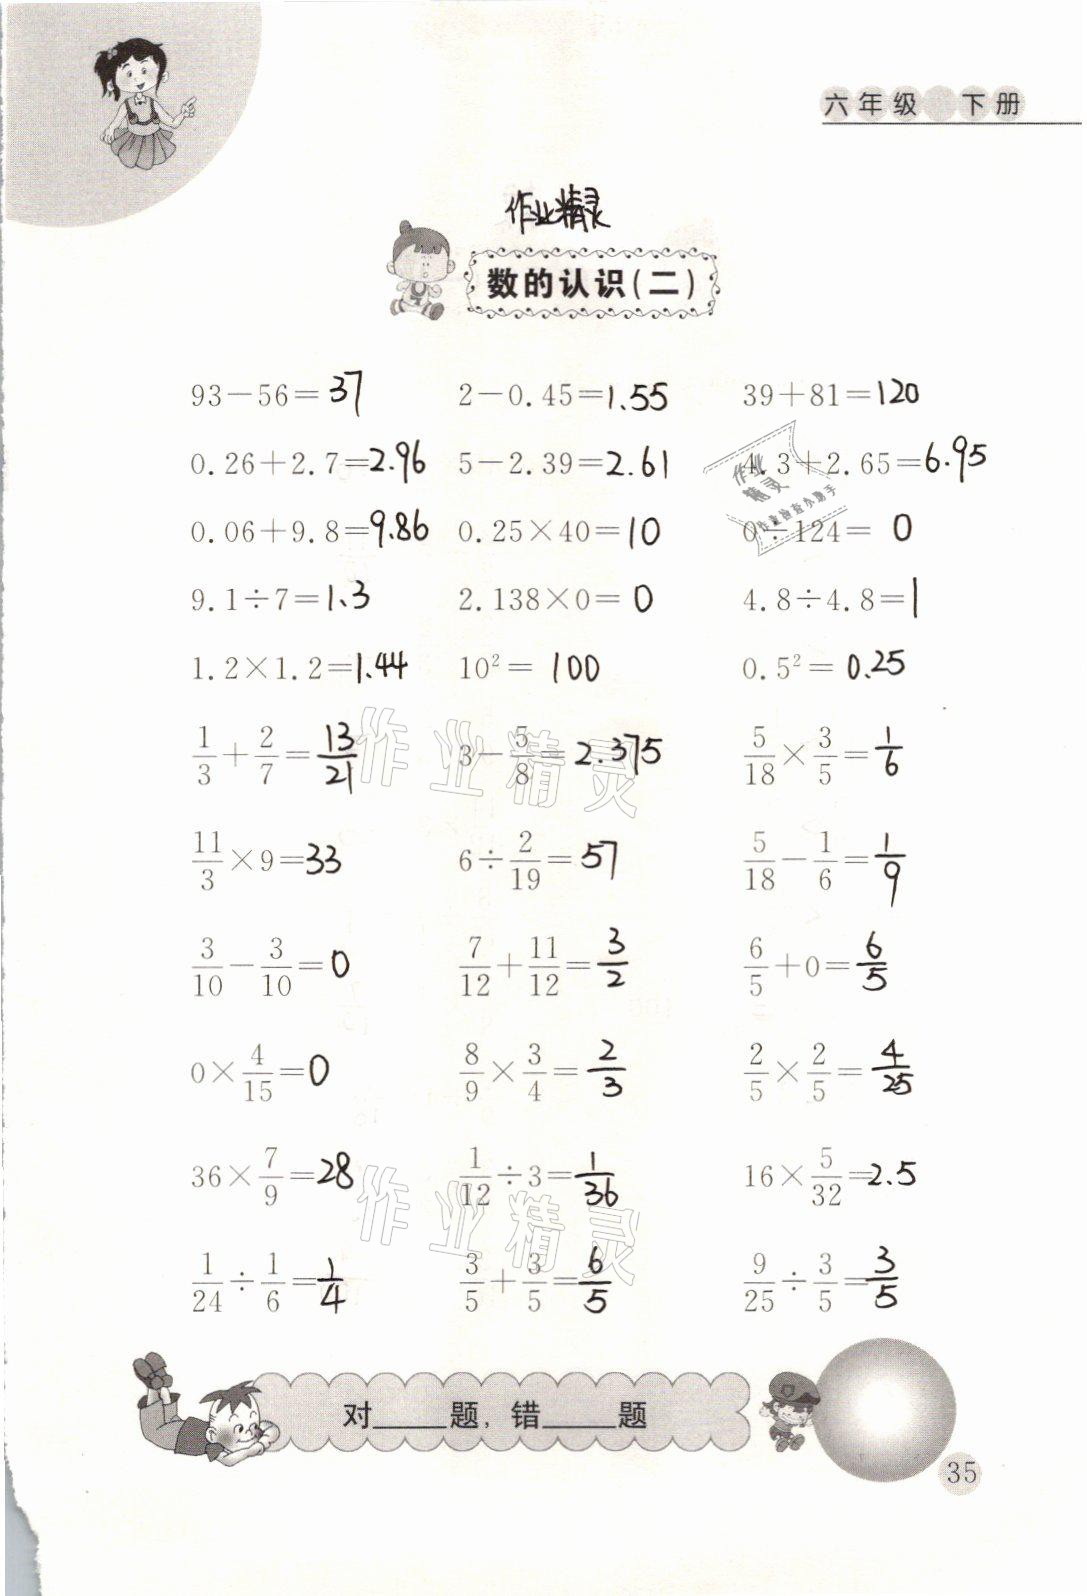 六年级 下册
作业精灵
数的认识(二)
93-56=37 2-0.45=1.55 39+81=120
0.26+2.7=2.96 5-2.39=2.61 4.3+2.65=6.95
0.06+9.8=9.86 0.25×40=10 0÷124=0
9.1÷7=1.3 2.138×0=0 4.8÷4.8=1
1.2×1.2=1.44 10²=100 0.5²=0.25
1/3+2/7=13/21 3-5/8=2.375 5/18×3/5=1/6
11/3×9=33 6÷2/19=57 5/18-1/6=1/9
3/10-3/10=0 7/12+11/12=3/2 6/5+0=6/5
0×4/15=0 8/9×3/4=2/3 2/5×2/5=4/25
36×7/9=28 1/12÷3=1/36 16×5/32=2.5
1/24÷1/6=1/4 3/5+3/5=6/5 9/25÷3/5=3/5
作业
精灵
作业检查小助手
作业精灵
作业精灵
对____题,错____题
35